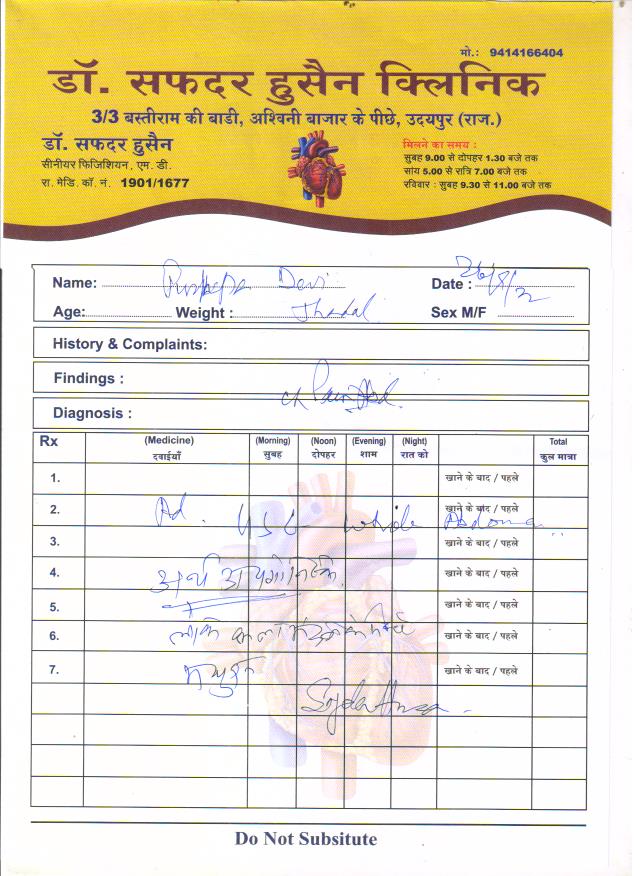 मो.: 9414166404
डॉ. सफदर हुसैन क्लिनिक
3/3 बस्तीराम की बाडी, अश्विनी बाजार के पीछे, उदयपुर (राज.)
डॉ. सफदर हुसैन
सीनीयर फिजिशियन, एम. डी.
रा. मेडि. कॉ. नं. 1901/1677
मिलने का समय :
सुबह 9.00 से दोपहर 1.30 बजे तक
सांय 5.00 से रात्रि 7.00 बजे तक
रविवार : सुबह 9.30 से 11.00 बजे तक
Name: Devi Date : 26/8/22
Age: Weight : Jhadal Sex M/F
History & Complaints:
Findings :
Diagnosis :
Rx (Medicine) (Morning) (Noon) (Evening) (Night) Total
दवाईयाँ सुबह दोपहर शाम रात को कुल मात्रा
1. खाने के बाद / पहले
2. खाने के बाद / पहले
Ad. USG whole Abdomen
3. खाने के बाद / पहले
4. खाने के बाद / पहले
5. खाने के बाद / पहले
6. खाने के बाद / पहले
7. खाने के बाद / पहले
Do Not Subsitute